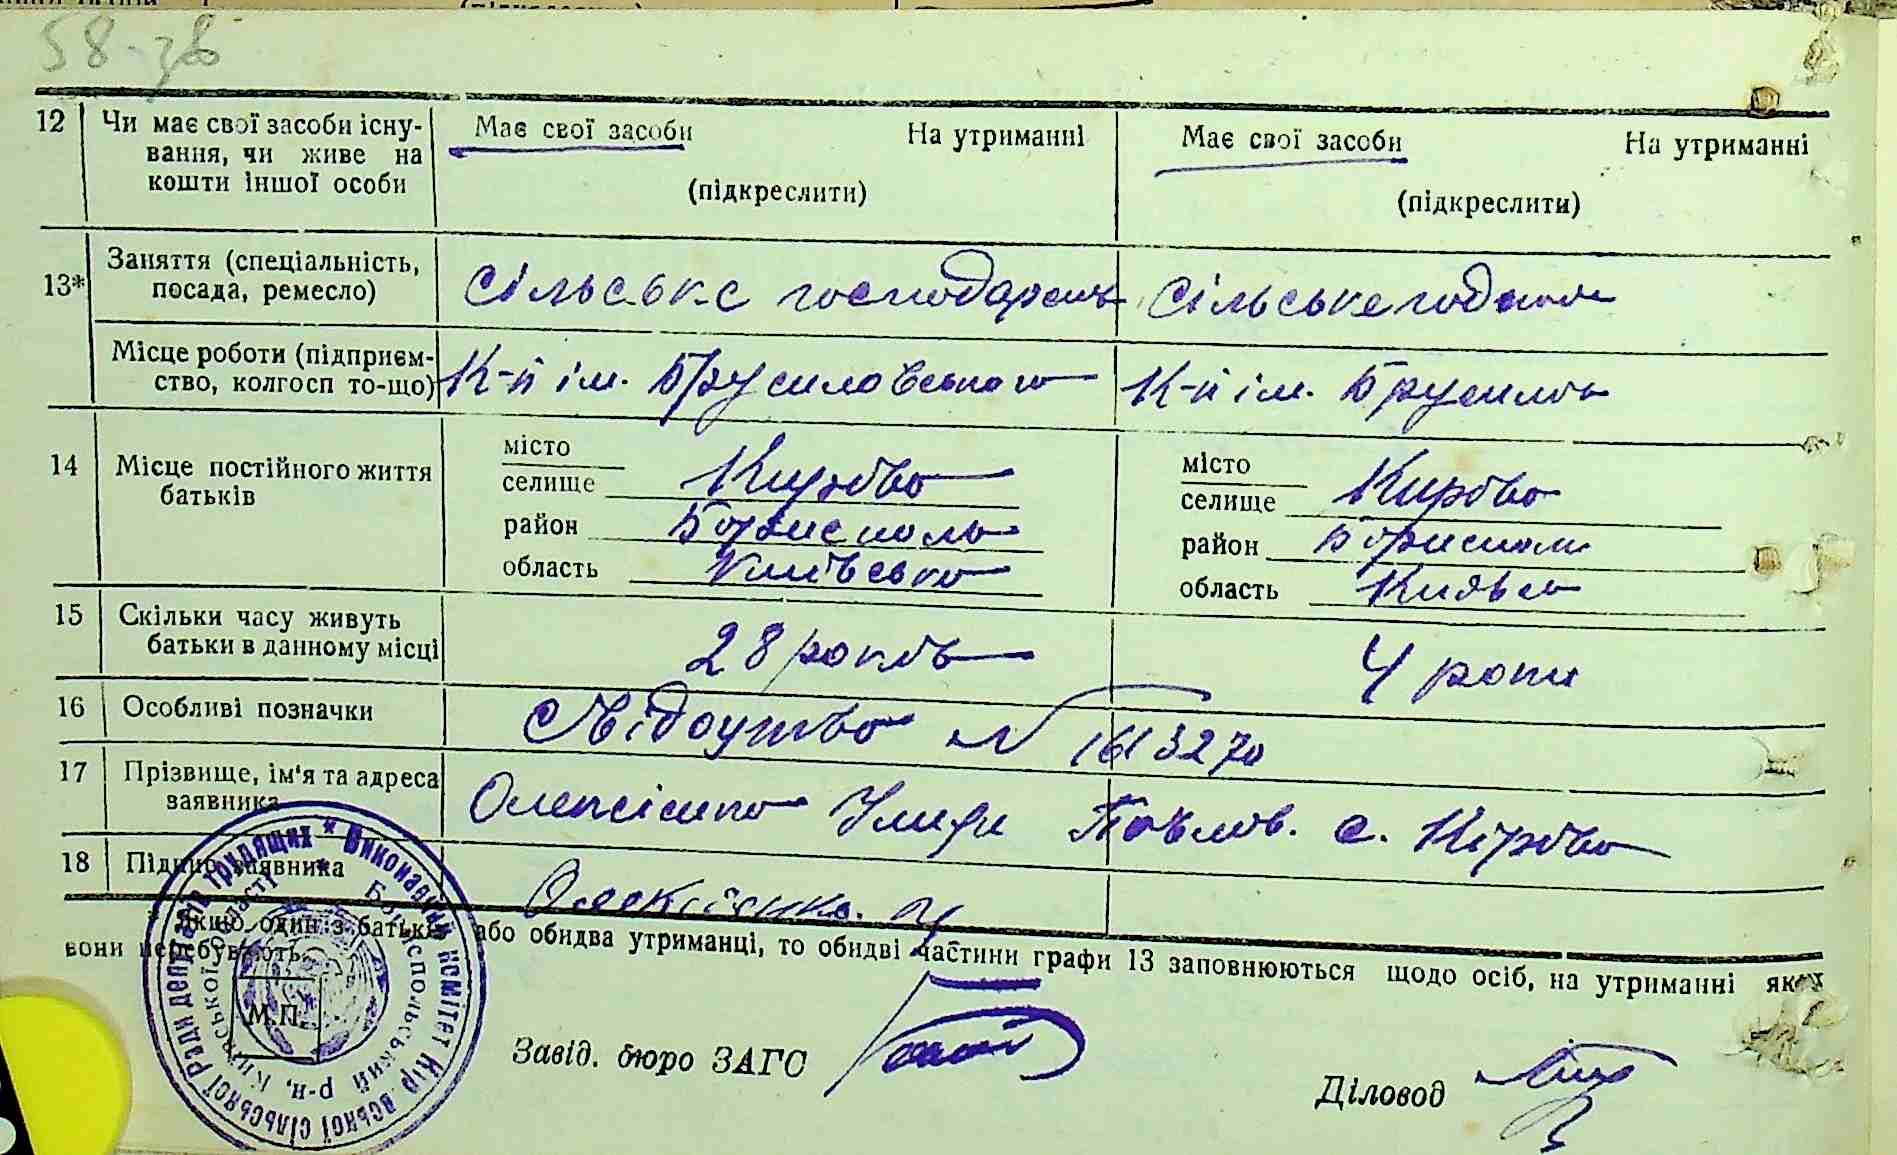 58-зв
12 Чи має свої засоби існу- Має свої засоби На утриманні Має свої засоби На утриманні
вання, чи живе на
кошти іншої особи (підкреслити) (підкреслити)
13* Заняття (спеціальність, Сільське господарств Сільське
посада, ремесло)
Місце роботи (підприєм- К-п ім. Брусиловського К-п ім. Брусилов
ство, колгосп то-що)
14 Місце постійного життя місто місто
батьків селище Кирово селище Кирово
район Борисполь район Бориспол
область Київсько область Київсь
15 Скільки часу живуть 28 років 4 роки
батьки в данному місці
16 Особливі позначки Свідоцтво № 1613270
17 Прізвище, ім'я та адреса Олексієнко Павлов. с. Кірово
заявника
18 Підпис заявника Олексієнко.
* Якщо один з батьків або обидва утриманці, то обидві частини графи 13 заповнюються щодо осіб, на утриманні яких
вони перебувають.
М.П.
Завід. бюро ЗАГС
Діловод
Виконавчий комітет Кір вської сільської Ради депутатів трудящих *
Бориспольський р-н, Київської області *